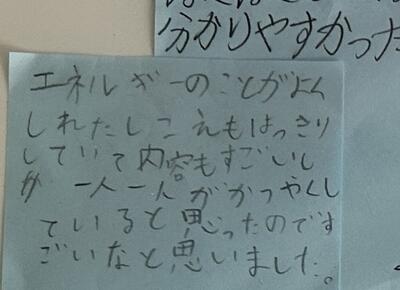 分かりやすかった
エネルギーのことがよく
しれたしこえもはっきり
していて内容もすごいし
が 一人一人ががつやくし
ていると思ったのです
ごいなと思いました。